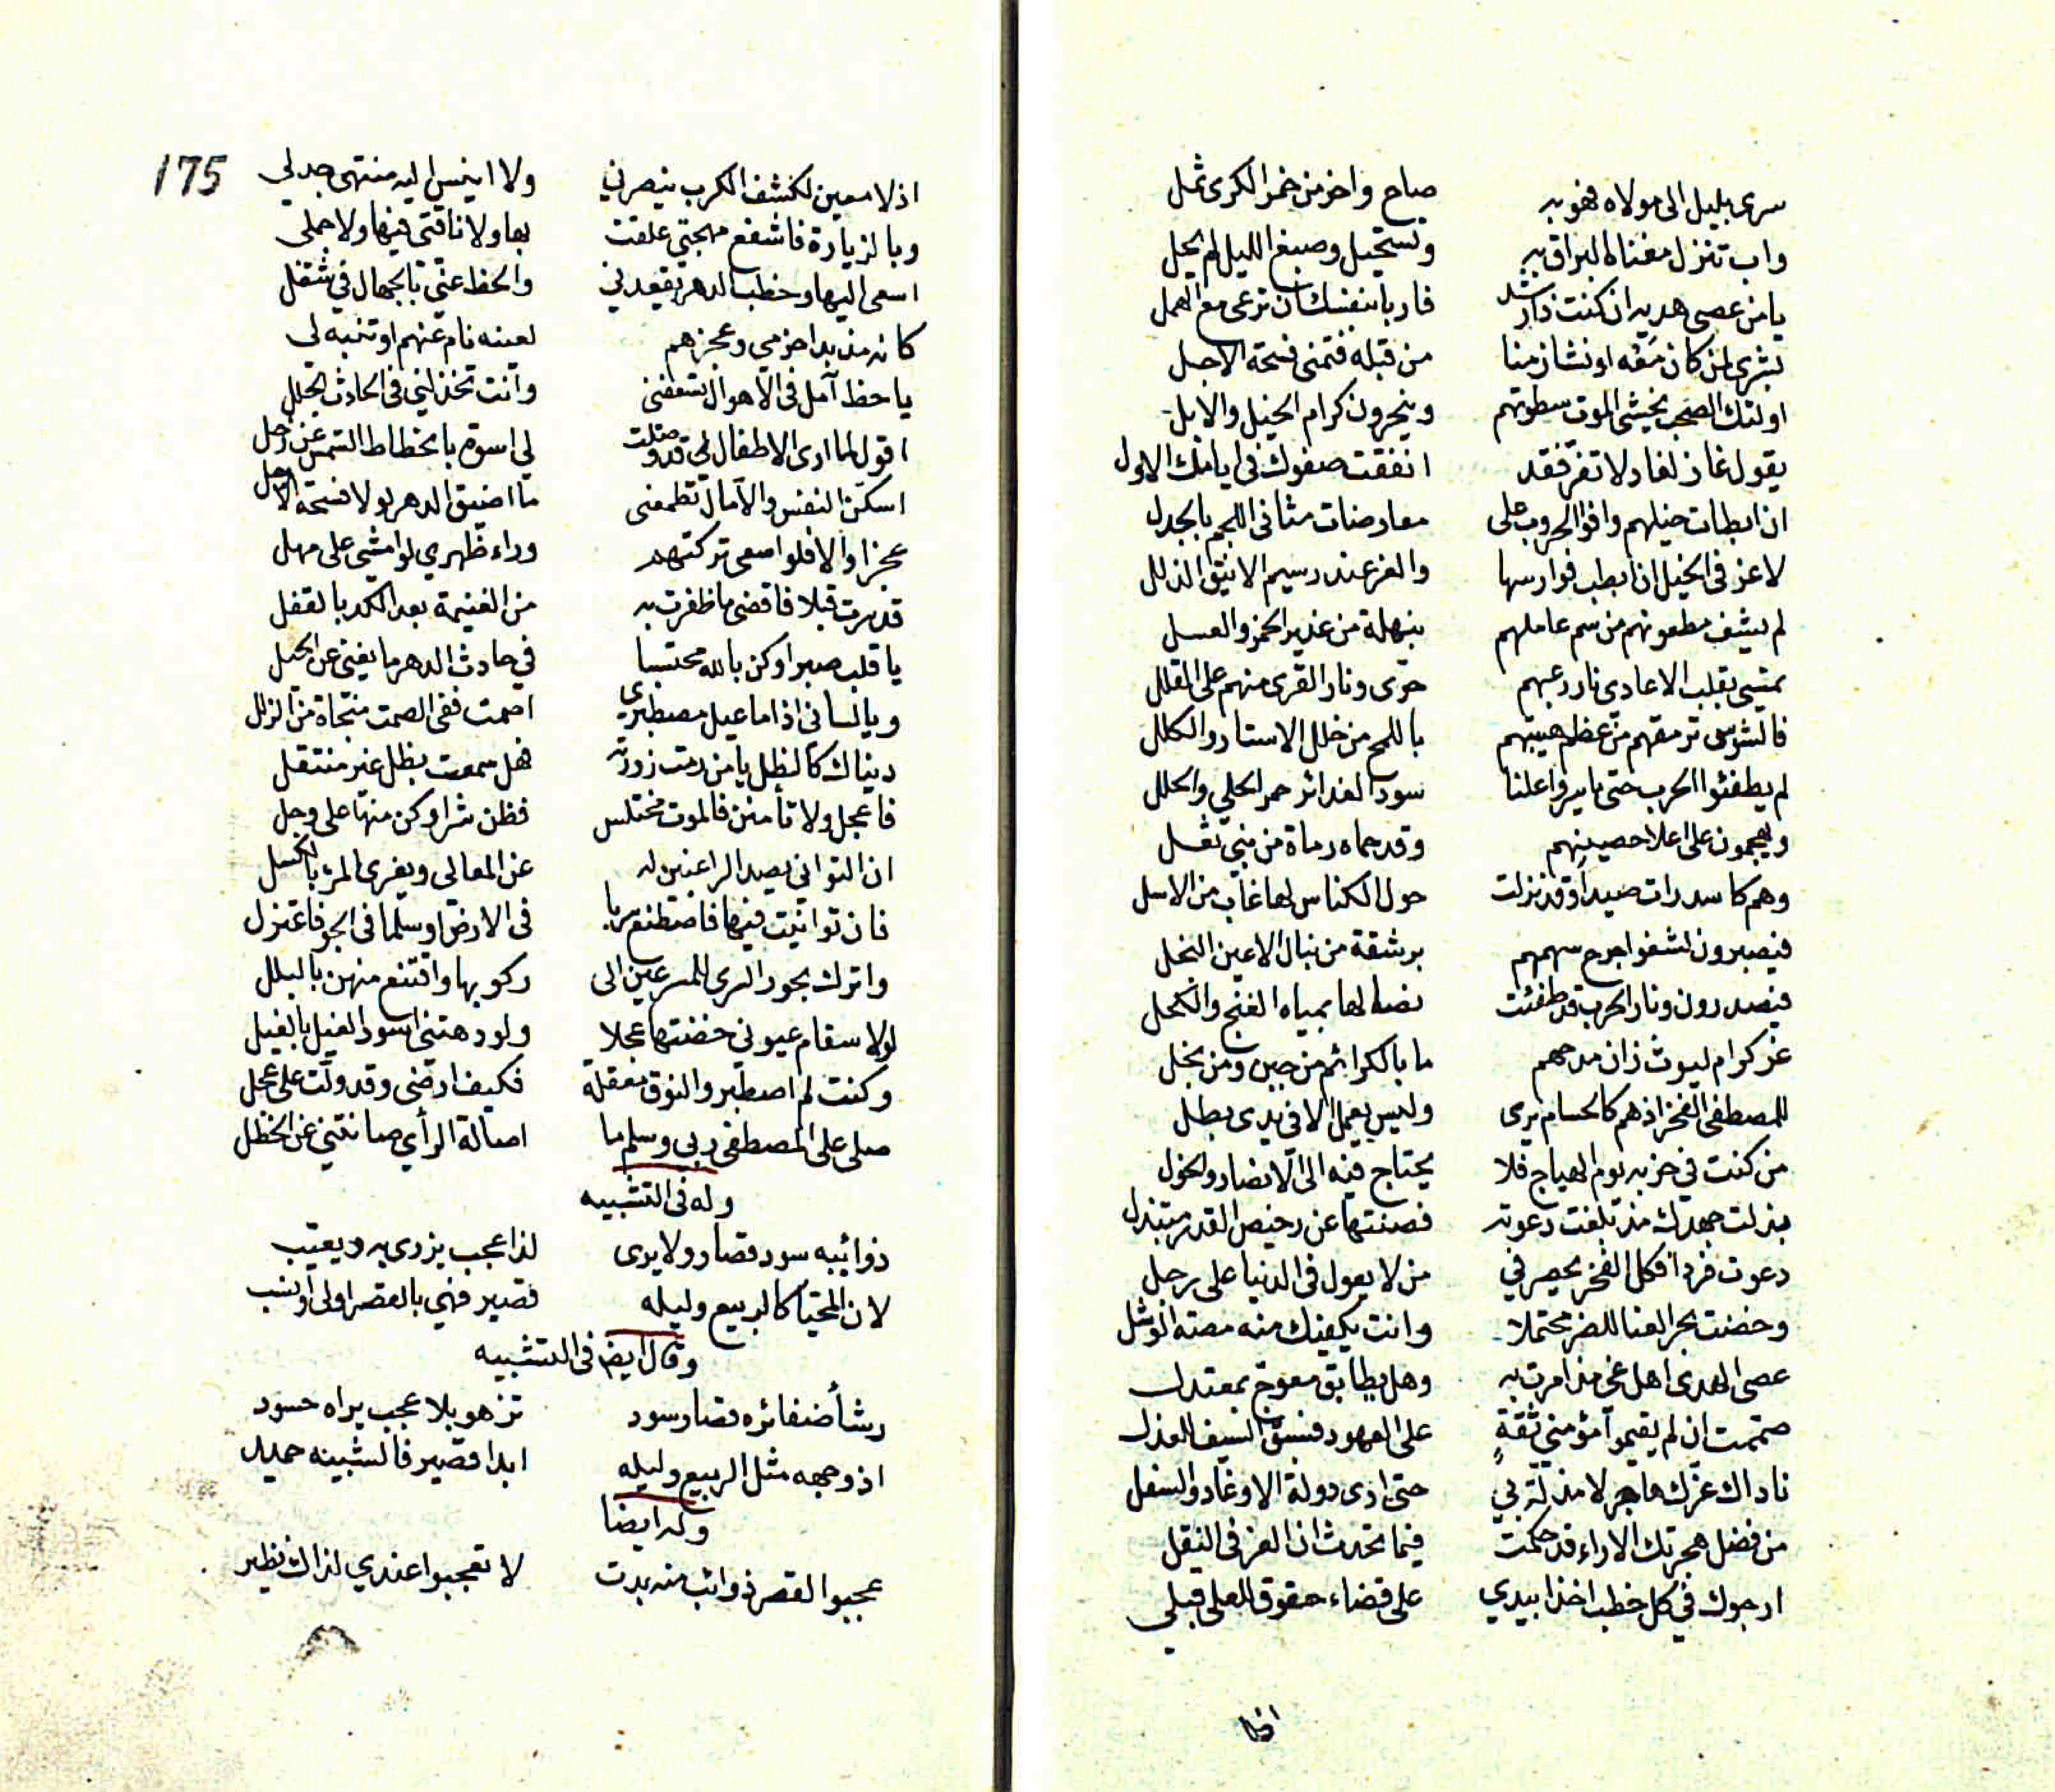 سرى بليل الى مولاه فهو به صاح واخر من خمر الكرى ثمل
واب تنزل مغناه البراق به وتستحيل وصبغ الليل لم يحل
يا من عصى هديه ان كنت ذا رشد فاربأ بنفسك ان ترعى مع الهمل
بشرى لمن كان معه او نشا زمنا من قبله فتمنى فسحة الاجل
اولئك الصحب يخشى الموت سطوتهم وينحرون كرام الخيل والابل
يقول غاز لغاد لا تفر فقد انفقت صفوك في ايامك الاول
ان ابطات خيلهم وافوا الحروب على معارضات مثاني اللجم بالجدل
لا عز في الخيل ان بطب فوارسها والعز عند رسيم الاينق الذلل
لم يشف مطعونهم من سم عاملهم بنهلة من غدير الخمر والعسل
تمشي بقلب الاعادي نار رعبهم حرى ونار القرى منهم على القلل
فالشوس ترمقهم من عظم هيبتهم باللمح من خلل الاستار والكلل
لم يطفئوا الحرب حتى ياسروا علنا سود الغدائر حمر الحلي والحلل
ويهجمون على اعلا حصينهم وقد حماه رماة من بني ثعل
وهم كاسد رات صيدا وقد نزلت حول الكناس لها غاب من الاسل
فيصبرون لشفوا جرح سهمهم برشقة من نبال الاعين النجل
فيصدرون ونار الحرب قد طفئت نصالها بمياه الغنج والكحل
غر كرام ليوث زان مدحهم ما بالكرائم من جبن ومن بخل
للمصطفى الفخر اذ هم كالحسام يرى وليس يعمل الا في يدى بطل
من كنت في حزبه يوم الهياج فلا يحتاج فيه الى الانصار والخول
بذلت جهدك مذ بلغت دعوته فصنتها عن رخيص القدر مبتذل
دعوت فردا فكل الفخر يحصر في من لا يعول في الدنيا على رجل
وخضت بحر العنا للضر محتملا وانت يكفيك منه مصة الوشل
عصى الهدى اهل غي مذ امرت به وهل يطابق معوج بمعتدل
صممت ان لم يقيموا مؤمني ثقة على العهود فسبق السيف للعذل
ناداك عزك هاجر لا مذلة بي حتى ارى دولة الاوغاد والسفل
من فضل هجرتك الاراء قد حكمت فيما تحدث ان العز في النقل
ارجوك في كل خطب اخذا بيدي على قضاء حقوق للعلى قبلي
175
اذ لا معين لكشف الكرب ينصرني ولا انيس اليه منتهى جدلي
وبالزيارة فاشفع مهجتي علقت بها ولا ناقتي فيها ولا جملي
اسعى اليها وخطب الدهر يقعدني والحظ عني بالجهال في شغل
كانه مذ بدا حزمي وعجزهم لعينه نام عنهم او تنبه لي
يا حظ آمل في الاهوال تسعفني وانت تخذلني في الحادث الجلل
اقول لما ارى الاطفال لي قد وصلت لي اسوة بانحطاط الشمس عن زحل
اسكن النفس والآمال تطمعني ما اضيق الدهر لولا فسحة الاجل
عجزا والا فلو اسعى تركتهم وراء ظهري لو امشي على مهل
قد سرت قبلا فاقضى ما ظفرت به من الغنيمة بعد الكد بالقفل
يا قلب صبرا وكن بالله محتسبا في حادث الدهر ما يغني عن الحيل
ويا لساني اذا ما عيل مصطبري اصمت ففي الصمت منجاة من الزلل
دنياك كالظل يا من رمت زورته فهل سمعت بظل غير منتقل
فاعجل ولا تأمنن فالموت مختلس فظن شرا وكن منها على وجل
ان التواني يصد الراغبين له عن المعالي ويغرى المرء بالكسل
فان توانيت فيها فاصطنع سربا في الارض او سلما في الجو فاعتزل
واترك بحور السرى للمسرعين الى ركوبها واقتنع منهن بالبلل
لولا سقام عيوني خضتها عجلا ولو دهتني اسود الغيل بالغيل
وكنت لم اصطبر والنوق معقلة فكيف ارضى وقد ولت على عجل
صلى على المصطفى ربي وسلم ما اصالة الرأي صانتني عن الخطل
وله في التشبيه
ذوائبه سود قصار ولا يرى لذا عجب يزرى به ويعيب
لان المحيا كالربيع وليله قصير فهي بالقصر اولى وانسب
وقال ايضا في التشبيه
رشأ ضفائره قصار سود تزهو بلا عجب يراه حسود
اذ وجهه مثل الربيع وليله ابدا قصير فالشبيه حميد
وله ايضا
عجبوا لقصر ذوائب منه بدت لا تعجبوا عندي لذاك نظير